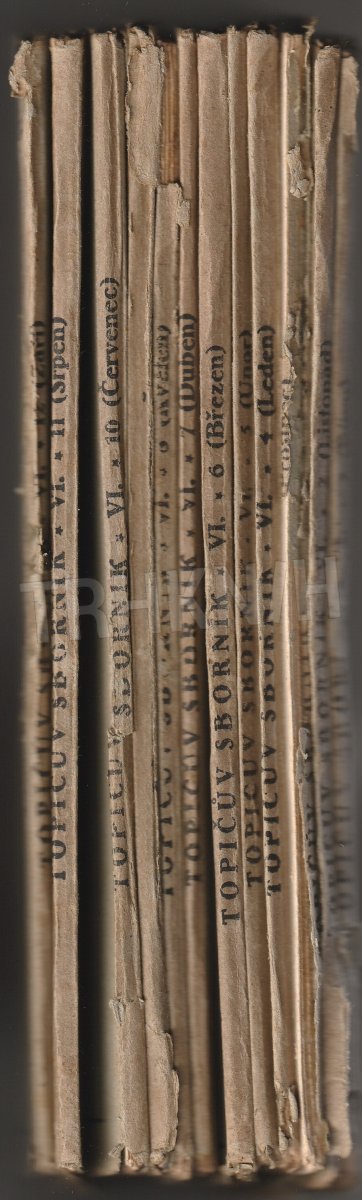 TOPIČŮV SBORNÍK * VI. * 12 (Září)
TOPIČŮV SBORNÍK * VI. * 11 (Srpen)
TOPIČŮV SBORNÍK * VI. * 10 (Červenec)
TOPIČŮV SBORNÍK * VI. * 8 (Květen)
TOPIČŮV SBORNÍK * VI. * 7 (Duben)
TOPIČŮV SBORNÍK * VI. * 6 (Březen)
TOPIČŮV SBORNÍK * VI. * 5 (Únor)
TOPIČŮV SBORNÍK * VI. * 4 (Leden)
(Listopad)